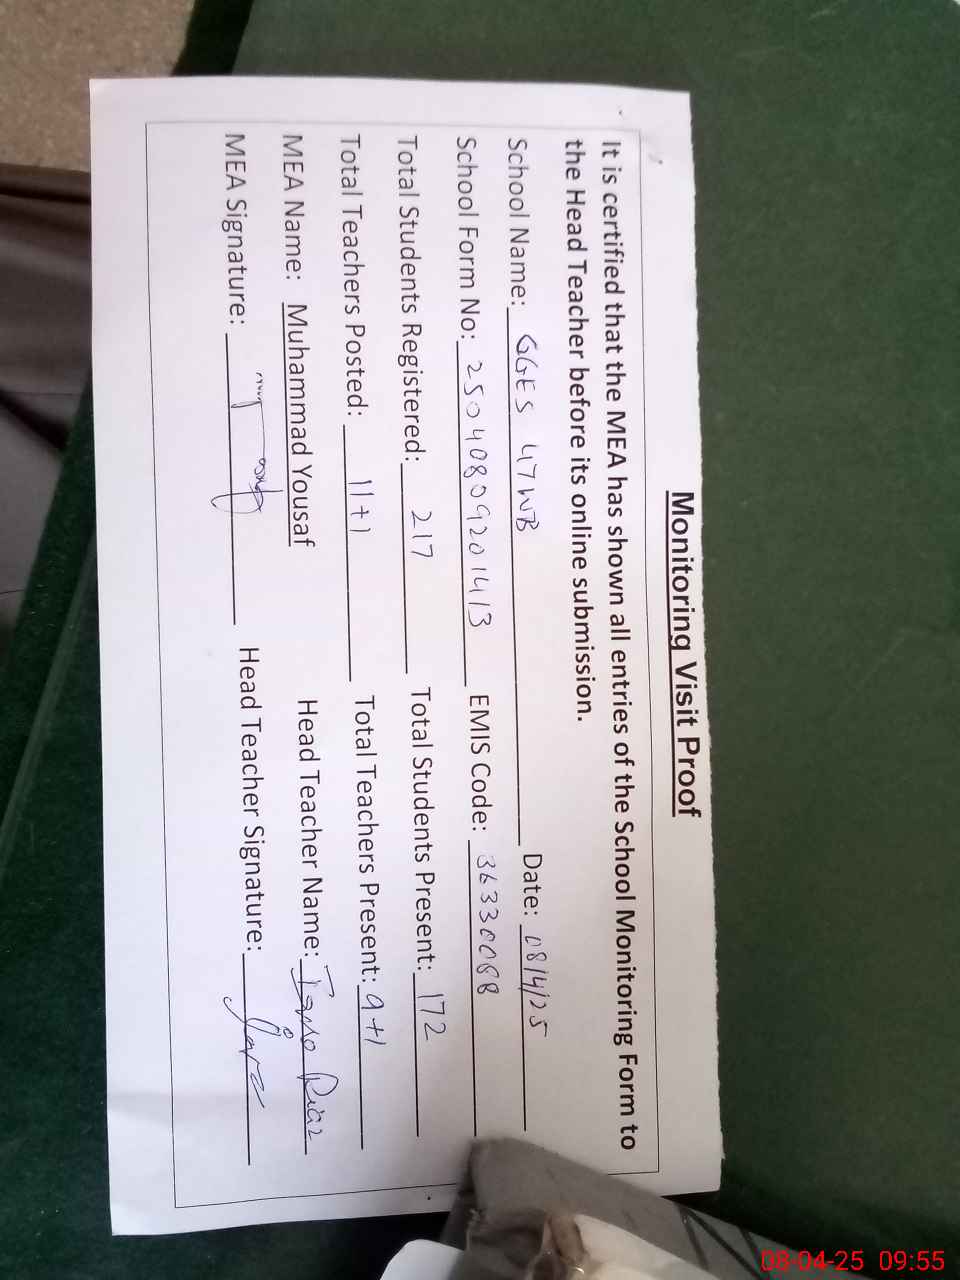 Monitoring Visit Proof
It is certified that the MEA has shown all entries of the School Monitoring Form to
the Head Teacher before its online submission.
School Name: GGES 47WB Date: 08/4/25
School Form No: 25040809201413 EMIS Code: 36330088
Total Students Registered: 217 Total Students Present: 172
Total Teachers Posted: 11+1 Total Teachers Present: 9+1
MEA Name: Muhammad Yousaf Head Teacher Name: Riaz
MEA Signature: Head Teacher Signature:
08-04-25 09:55